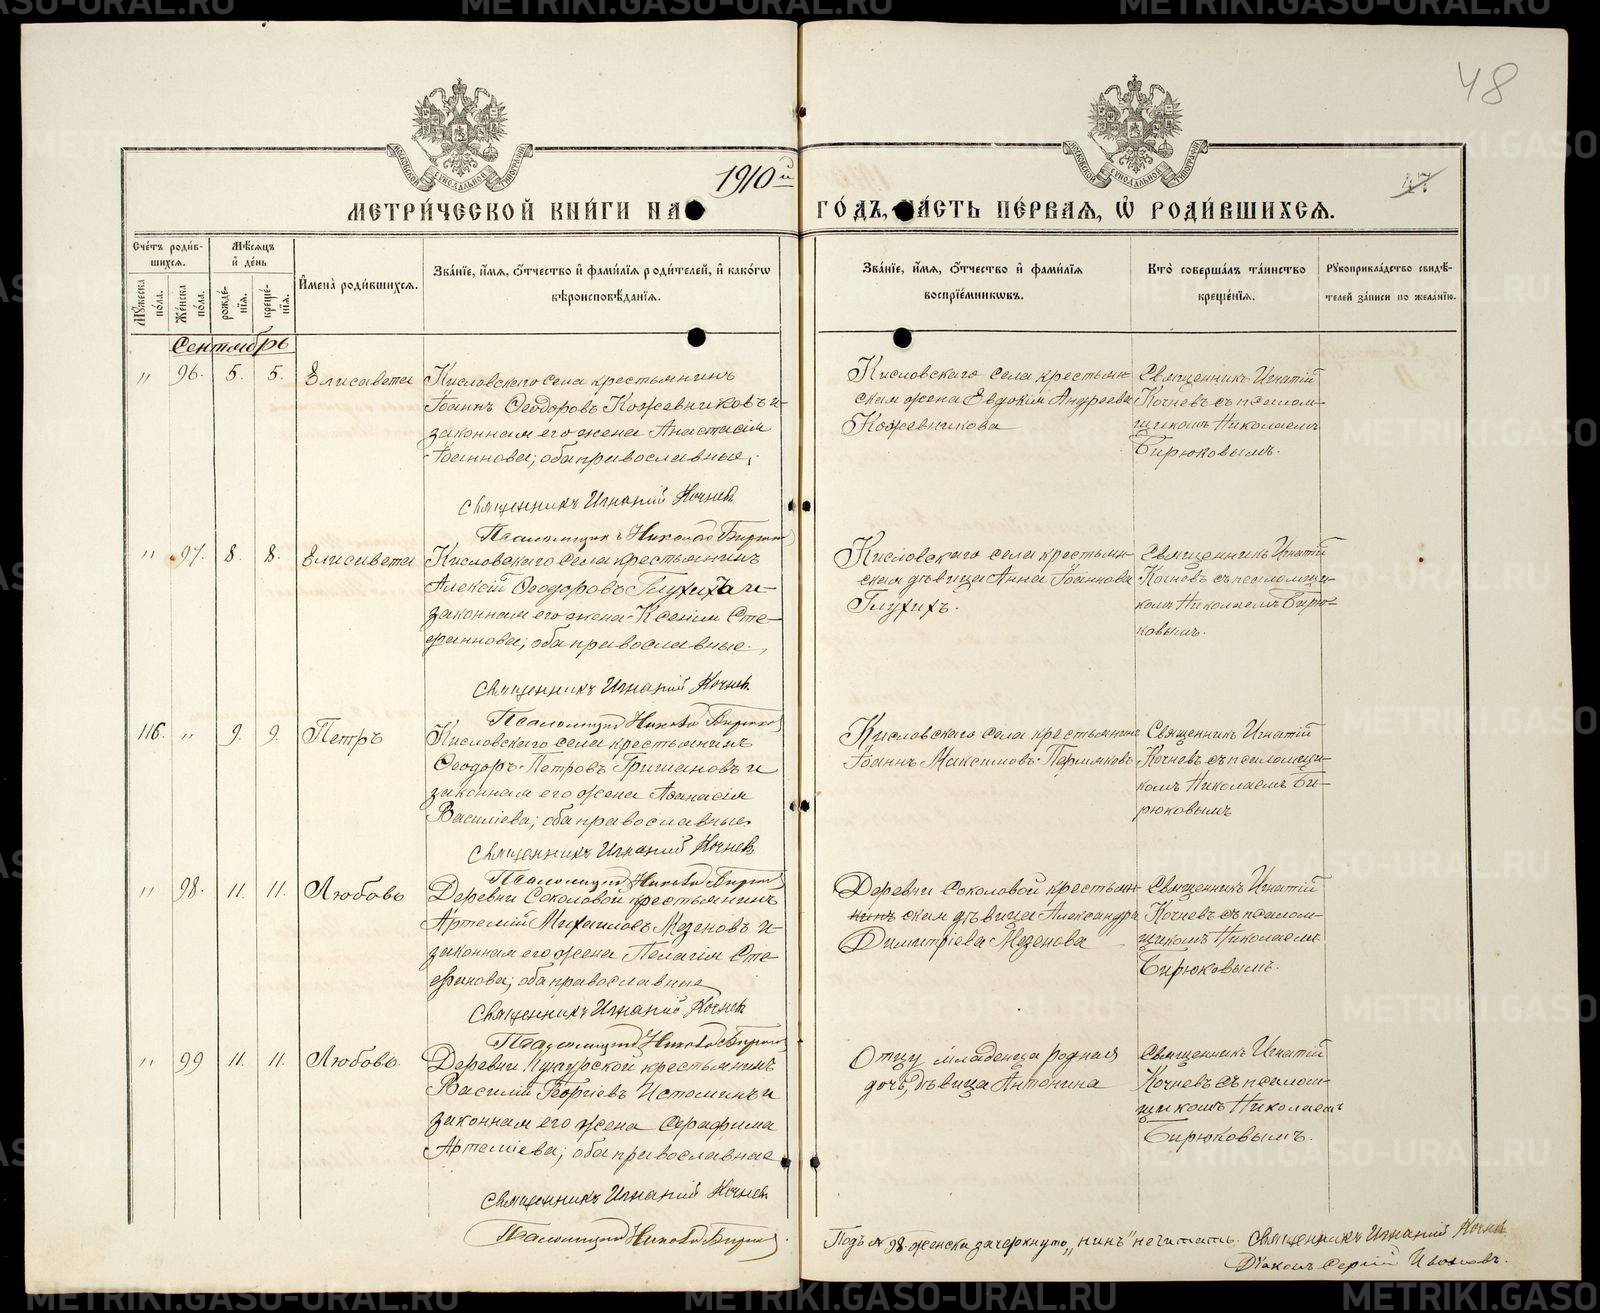 48
47
1910й
МЕТРИ́ЧЕСКОЙ КНИ́ГИ НА
ГО́ДЪ, ЧА́СТЬ ПЕ́РВАЯ, Ѡ РОДИ́ВШИХСЯ.
Сче́тъ роди́вшихся.
Мѣ́сяцъ и҆ де́нь
Му́жеска по́ла.
Же́нска по́ла.
рожде́нїя.
креще́нїя.
И҆мена̀ роди́вшихся.
Зва́нїе, и҆́мя, ѻ҆́тчество и҆ фами́лїя роди́телей, и҆ како́гѡ вѣроисповѣ́данїя.
Зва́нїе, и҆́мя, ѻ҆́тчество и҆ фами́лїя воспрїе́мникѡвъ.
Кто̀ соверша́лъ та́инство креще́нїя.
Рꙋкоприкла́дство свидѣ́телей за́писи по жела́нїю.
Сентябрь
" 96. 5. 5. Елисавета
Кисловскаго села крестьянинъ
Іоаннъ Ѳеодоровъ Кожевниковъ и
законная его жена Анастасія
Іоаннова; оба православные.
Священникъ Игнатій Кочневъ
Псаломщикъ Николай Бирюков
Кисловскаго села крестьян-
ская жена Евдокія Андреева
Кожевникова
Священникъ Игнатій
Кочневъ съ псалом-
щикомъ Николаемъ
Бирюковымъ.
" 97. 8. 8. Елисавета
Кисловскаго села крестьянинъ
Алексій Ѳеодоровъ Глухихъ и
законная его жена Ксенія Сте-
фаннова; оба православные.
Священникъ Игнатій Кочнев
Псаломщик Николай Бирюков
Кисловскаго села крестьян-
ская дѣвица Анна Іоаннова
Глухихъ.
Священникъ Игнатій
Кочневъ съ псаломщи-
комъ Николаемъ Бирю-
ковымъ.
116. " 9. 9. Петръ
Кисловскаго села крестьянинъ
Ѳеодоръ Петровъ Гришановъ и
законная его жена Аѳанасія
Василіева; оба православные.
Священникъ Игнатій Кочнев
Псаломщик Николай Бирюков
Кисловскаго села крестьянинъ
Іоаннъ Максимовъ Пермяковъ
Священникъ Игнатій
Кочневъ съ псаломщи-
комъ Николаемъ Би-
рюковымъ
" 98. 11. 11. Любовь
Деревни Соколовой крестьянинъ
Артемій Михаиловъ Мезеновъ и
законная его жена Пелагія Сте-
фанова; оба православные
Священникъ Игнатій Кочнев
Псаломщик Николай Бирюков
Деревни Соколовой крестьян-
нинъ ская дѣвица Александра
Димитріева Мезенова
Священникъ Игнатій
Кочневъ съ псалом-
щикомъ Николаемъ
Бирюковымъ.
" 99 11. 11. Любовь.
Деревни Кунгурской крестьянинъ
Василій Георгіевъ Истоминъ и
законная его жена Серафима
Артеміева; оба православные
Священникъ Игнатій Кочнев
Псаломщик Николай Бирюков.
Отцу младенца родная
дочь, дѣвица Антонина
Священникъ Игнатій
Кочневъ съ псалом-
щикомъ Николаемъ
Бирюковымъ.
Подъ № 98 женска зачеркнуто „нинъ" не читать. Священникъ Игнатій Кочнев
Діаконъ Сергій Ивановъ.
METRIKI.GASO-URAL.RU